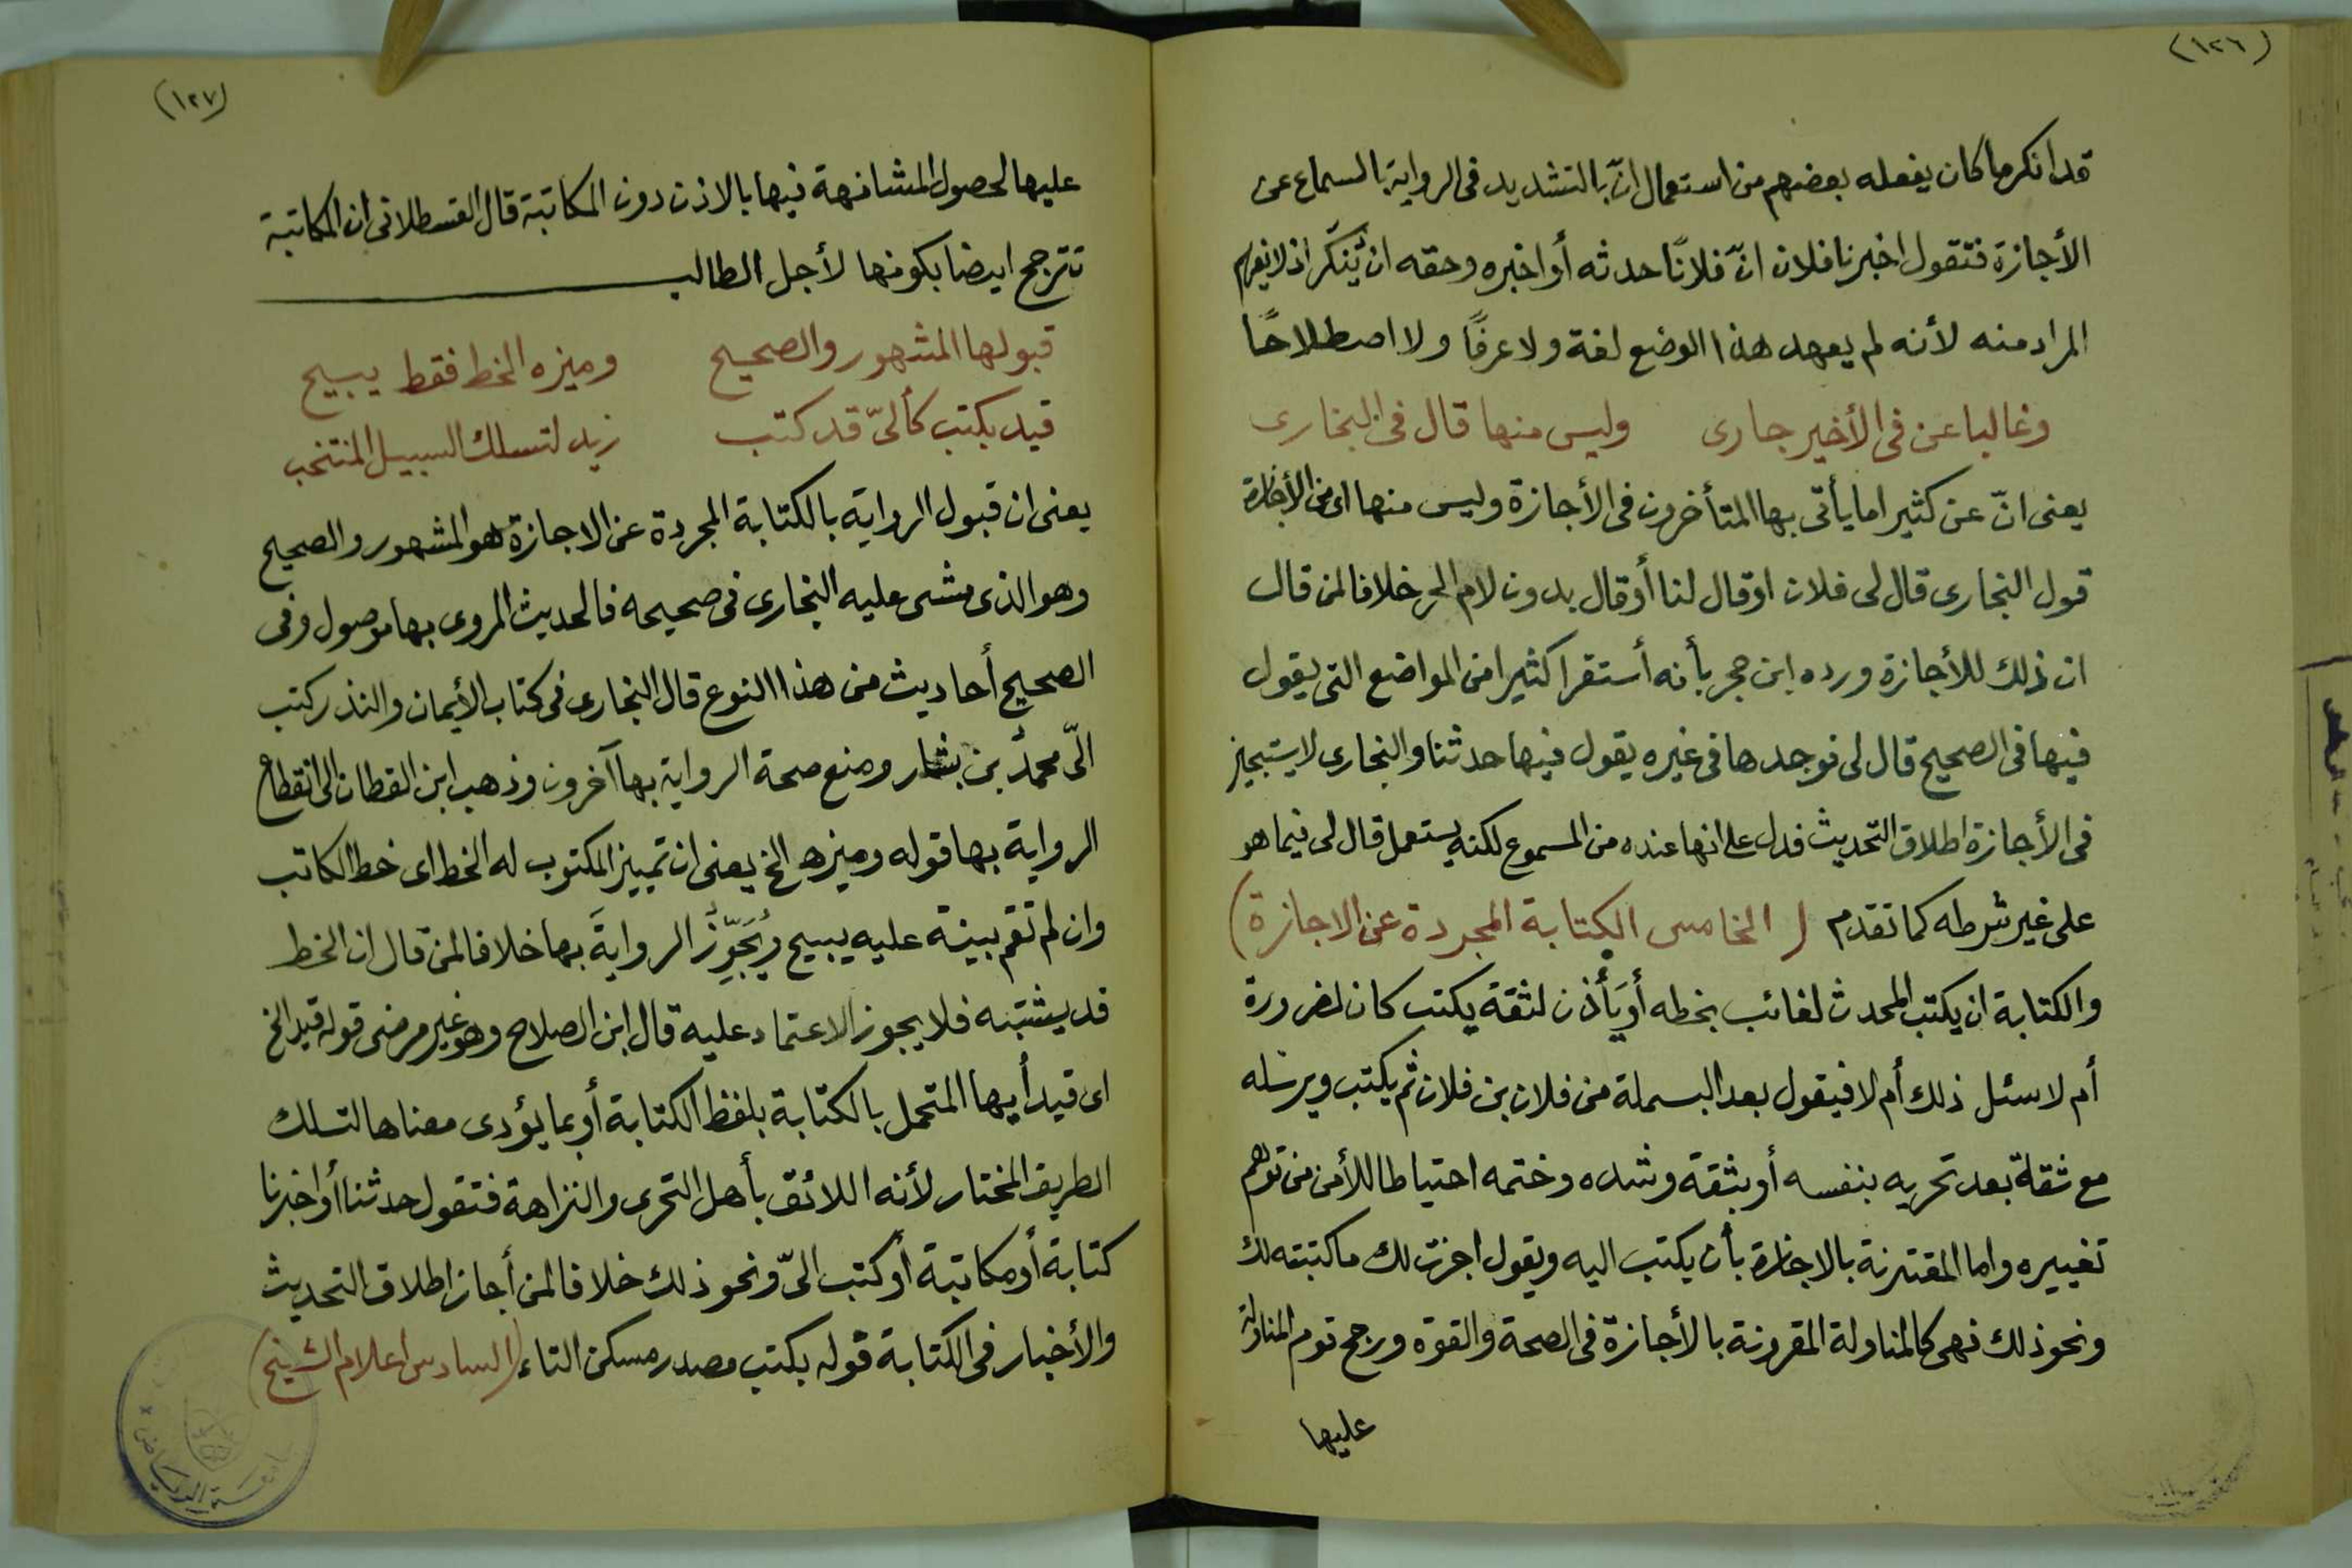 (١٢٦)
قد انكر ما كان يفعله بعضهم من استعمال انّ بالتشديد فى الرواية بالسماع عن
الأجازة فتقول اخبرنا فلان انّ فلانًا حدثه أو اخبره وحقه ان يُنكَر اذ لا يفهم
المراد منه لأنه لم يعهد هذا الوضع لغة ولا عرفًا ولا اصطلاحًا
وغالبا عن فى الأخير جارى وليس منها قال فى البخارى
يعنى انّ عن كثيرا ما يأتى بها المتأخرون فى الأجازة وليس منها اى من الأجازة
قول البخارى قال لى فلان او قال لنا أو قال بدون لام الجر خلافا لمن قال
ان ذلك للأجازة ورده ابن حجر بأنه أستقرا كثيرا من المواضع التى يقول
فيها فى الصحيح قال لى فوجدها فى غيره يقول فيها حدثنا والبخارى لا يستجيز
فى الأجازة اطلاق التحديث فدل على انها عنده من المسموع لكنه يستعمل قال لى فيما هو
على غير شرطه كما تقدم ( الخامس الكتابة المجردة عن الاجازة )
والكتابة ان يكتب المحدث لغائب بخطه أو يأذن لثقة يكتب كان لضرورة
أم لا سئل ذلك أم لا فيقول بعد البسملة من فلان بن فلان ثم يكتب ويرسله
مع ثقة بعد تحريه بنفسه أو بثقة وشده وختمه احتياطا للأمن من توهم
تغييره واما المقترنة بالاجازة بأن يكتب اليه ويقول اجزت لك ما كتبته لك
ونحو ذلك فهى كالمناولة المقرونة بالأجازة فى الصحة والقوة ورجح قوم المناولة
عليها
(١٢٧)
عليها لحصول المشافهة فيها بالاذن دون المكاتبة قال القسطلانى ان المكاتبة
تترجح ايضا بكونها لأجل الطالب
قبولها المشهور والصحيح وميزه الخط فقط يبيح
قيد بكتب كألىّ قد كتب زيد لتسلك السبيل المنتخب
يعنى ان قبول الرواية بالكتابة المجردة عن الاجازة هو المشهور والصحيح
وهو الذى مشى عليه البخارى فى صحيحه فالحديث المروى بها موصول وفى
الصحيح أحاديث من هذا النوع قال البخارى فى كتاب الأيمان والنذر كتب
الىّ محمد بن بشار ومنع صحة الرواية بها آخرون وذهب ابن القطان الى انقطاع
الرواية بها قوله وميزه الخ يعنى ان تمييز المكتوب له الخط اى خط الكاتب
وان لم تقم بينة عليه يبيح ويُجَوِّزُ الروايةَ بها خلافا لمن قال ان الخط
قد يشتبه فلا يجوز الاعتماد عليه قال ابن الصلاح وهو غير مرضى قوله قيد الخ
اى قيد أيها المتحمل بالكتابة بلفظ الكتابة أو بما يؤدى معناها لتسلك
الطريق المختار لأنه اللائق بأهل التحرى والنزاهة فتقول حدثنا أو اخبرنا
كتابة أو مكاتبة أو كتب الىّ ونحو ذلك خلافا لمن أجاز اطلاق التحديث
والأخبار فى الكتابة قوله بكتب مصدر مسكن التاء (السادس اعلام الشيخ)